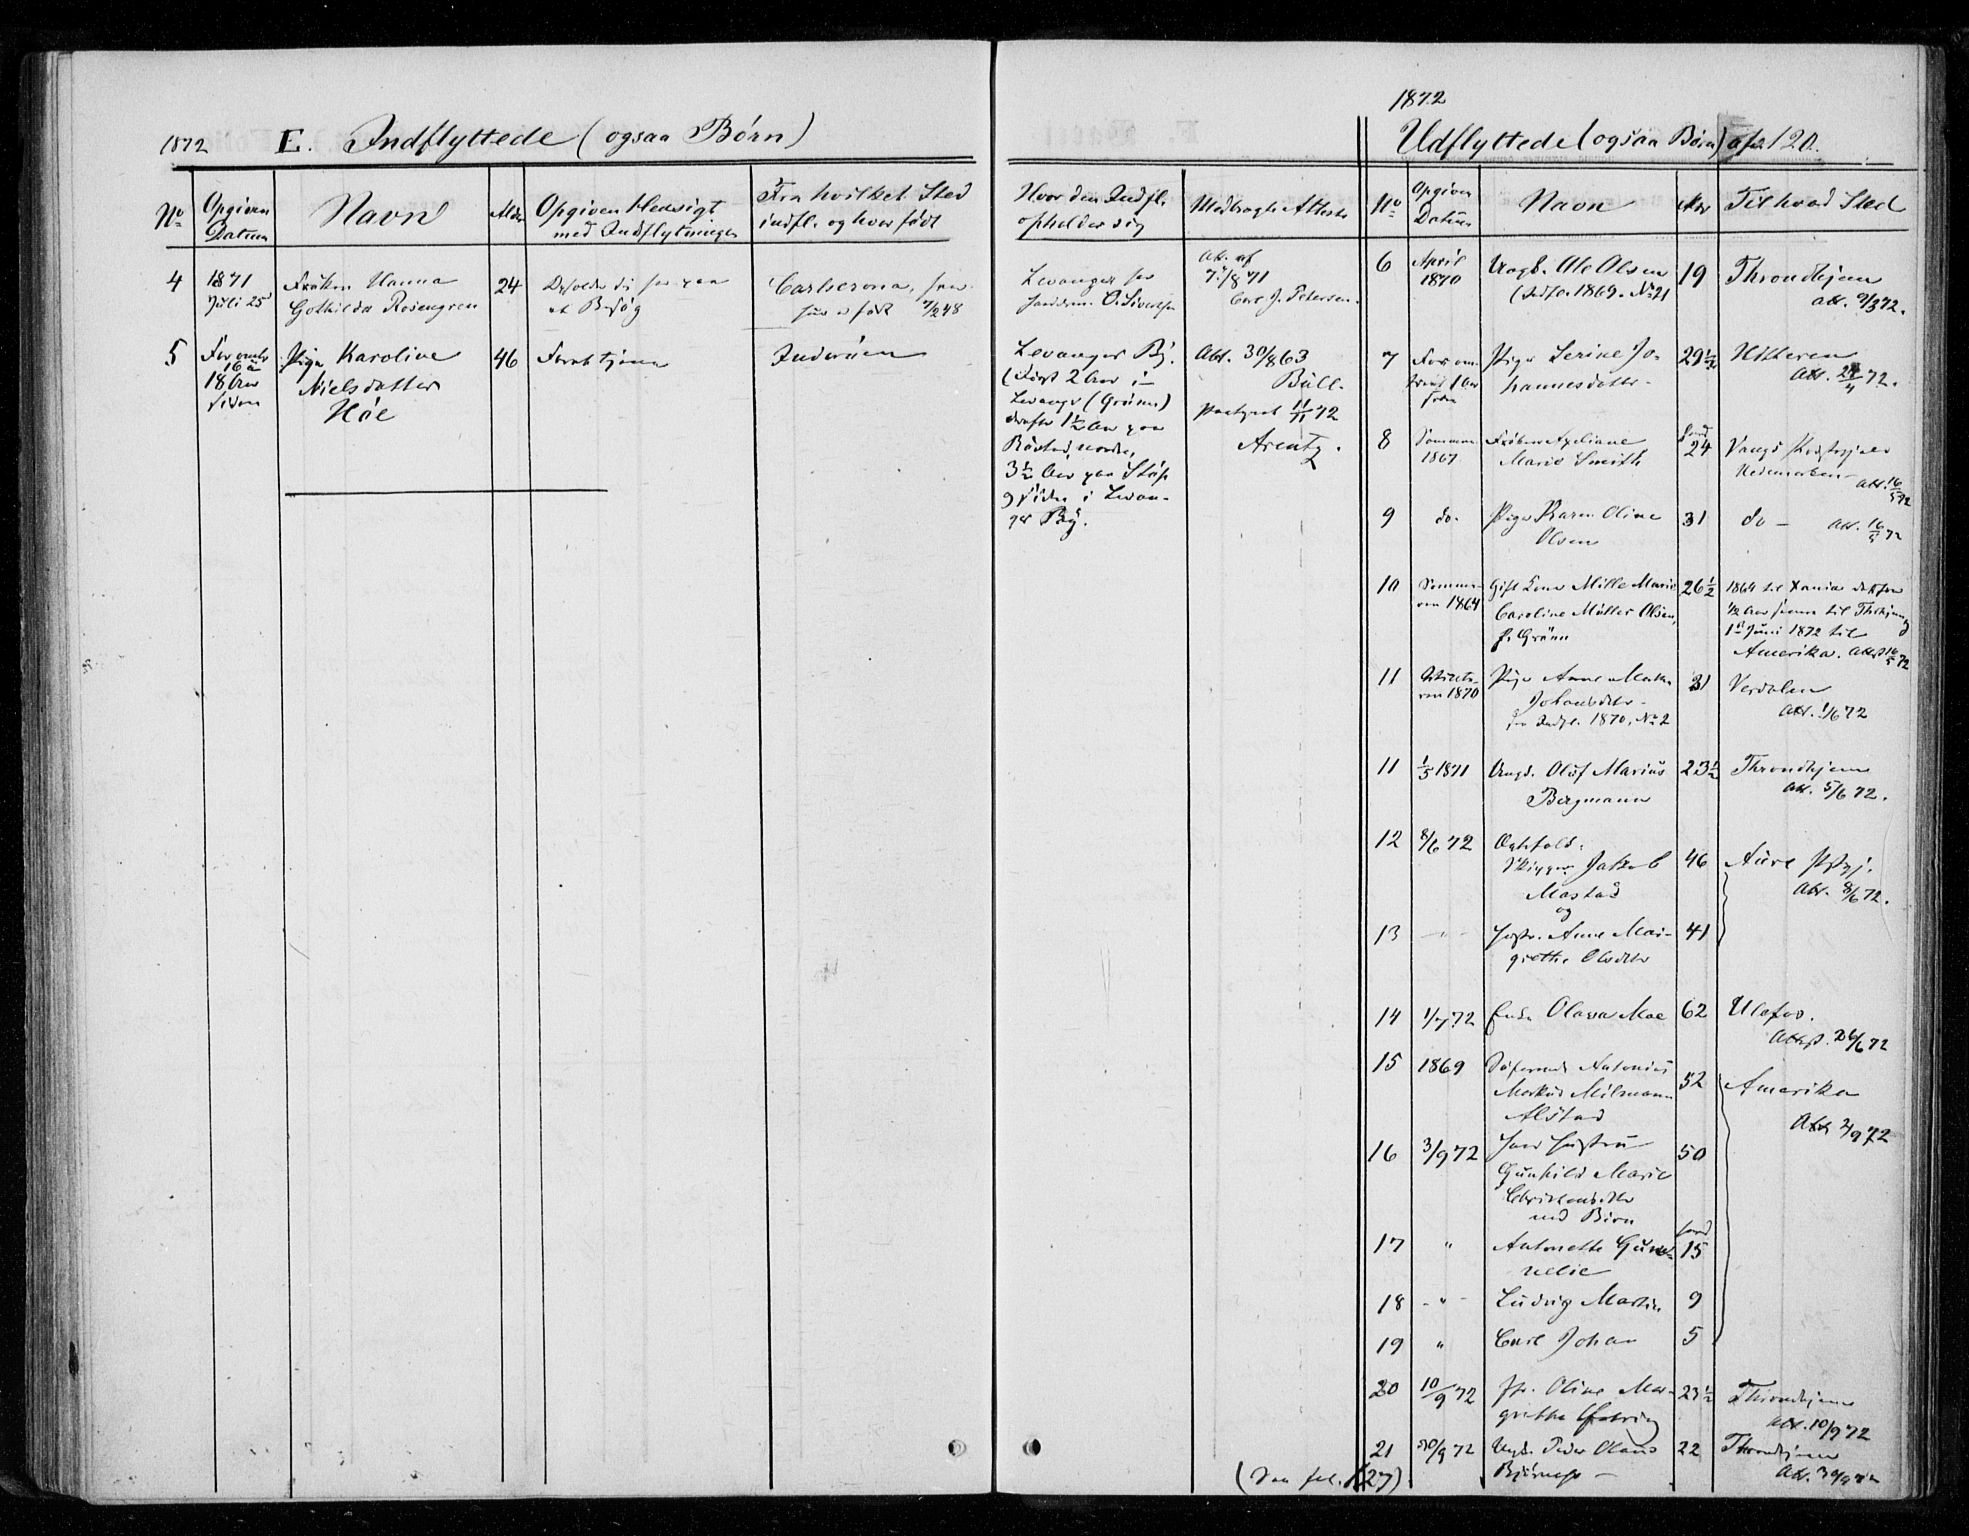 1872 E. Indflyttede (ogsaa Børn)
No
Opgiven Datum
Navn
Alder
Opgiven Hensigt med Indflytningen
Fra hvilket Sted indfl. og hvor født
Hvor den Indfl. opholder sig
Medbragte Attester
4
1871
Juli 25
Frøken Hanna
Gothilda Rosengren
24
et Besøg
Carlscrona,
født 7/2 48
Levanger
Att. af
7/8 71
Carl J. Petersen.
5
For omtr
16 à
18 Aar
siden
Pige Karoline
Nielsdatter
Høe
46
Inderøen
Levanger By.
(Først 2 Aar i
Levanger (Grønn)
derefter 1½ Aar paa
nordre,
3½ Aar paa
siden i Levan-
ger By.
Att. 30/8 63
Bull.
paategnet 11/11 72
Arentz.
1872
Udflyttede (ogsaa Børn) afr 120.
No
Opgiven Datum
Navn
Alder
Til hvad Sted
6
April
1870
Ungk. Ole Olsen
(Indfl. 1869. No 21
19
Throndhjem
att. 9/3 72.
7
For om-
trent 1 Aar
siden
Pige Serine Jo-
hannesdatter
29½
Hitteren
Att. 72.
8
Sommer
1867
Frøken Axeliane
Marie Smith
24
Vangs Præstegjeld
Hedemarken
att. 16/5 72
9
do.
Pige Karen Oline
Olsen
31
do –
att. 16/5 72
10
Somme-
ren 1864
Gift Kone Mille Marie
Caroline Møller Olsen,
f. Grønn
26½
1864 til Xania derfra
½ Aar senere til Thrhjem og
1st Juni 1872 til
Amerika. Attest 16/5 72
11
ren 1870
Pige Anne Martha
Johansdtr
Indfl. 1870, No 2
31
Verdalen
Att. 1/6 72
11
1/5 1871
Ungk. Oluf Marius
Bergmann
23½
Throndhjem
att. 5/6 72.
12
8/6 72
Jakob
Mastad
og
46
Aure Pstgj.
Att. 8/6 72.
13
Hustr. Anne Mar-
grethe Olsdtr
41
14
1/7 72
Enke Olava Moe
62
Ulefos.
Attest. 26/6 72
15
1869
Antonius
Markus Milmann
Alstad
52
Amerika
Att 2/9 72
16
3/9 72
hans Hustru
Gunhild Marie
Christensdtr
med Børn
50
17
"
Antonette
15
18
- " -
Ludvig Martin
9
19
"
Carl Johan
5
20
10/9 72
Jfr. Oline Mar-
grethe
23½
Throndhjem
att. 10/9 72
21
30/9 72
Ungk. Peder Olaus
22
Throndhjem
Att. 30/9 72
(See fol. 127)